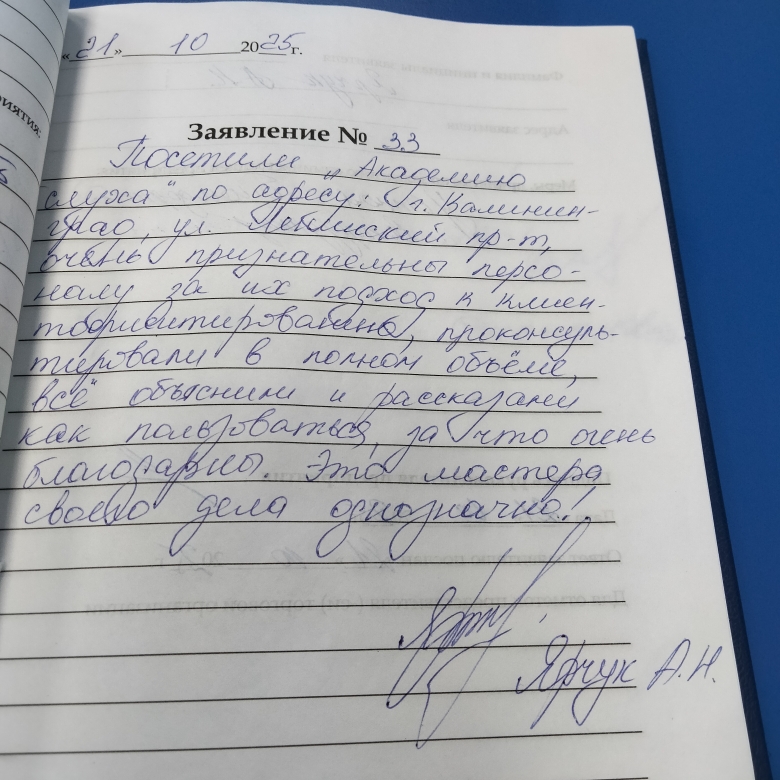 «21» 10 2025 г.
Заявление № 33
Посетили "Академию
слуха" по адресу: г. Калинин-
град, ул. Ленинский пр-т,
очень признательны персо-
налу за их подход к клиен-
тоориентированию, проконсуль-
тировали в полном объёме,
всё объяснили и рассказали
как пользоваться, за что очень
благодарны. Это мастера
своего дела однозначно!
Ярчук А.Н.